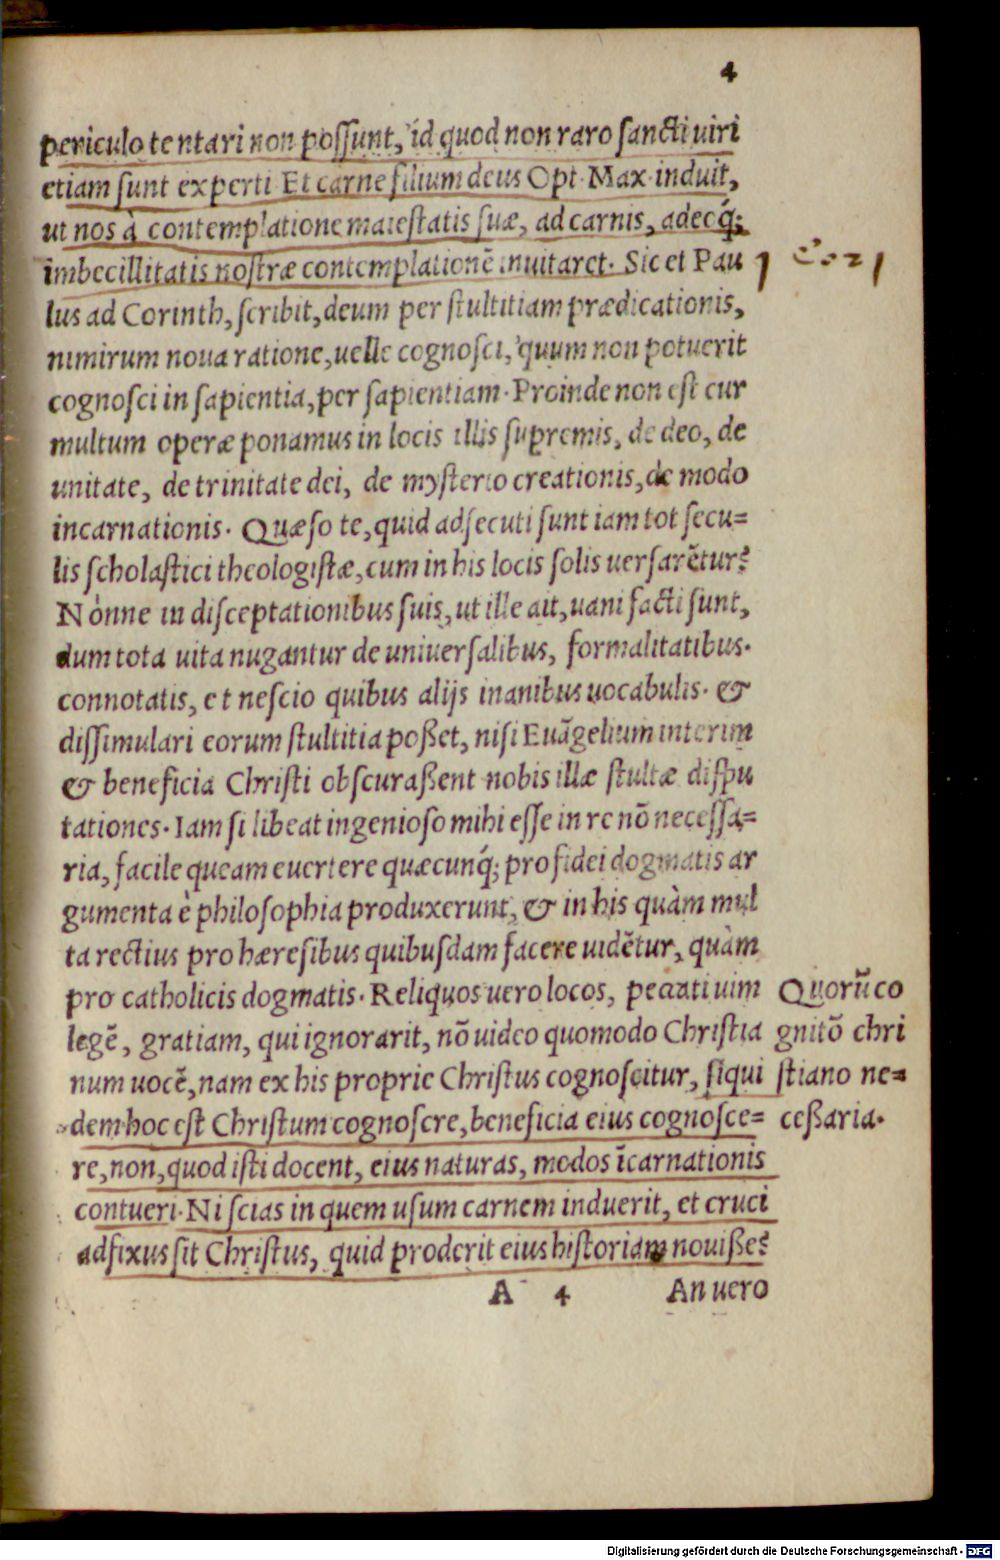 4
periculo tentari non possunt, id quod non raro sancti uiri
etiam sunt experti. Et carne filium deus Opt. Max. induit,
ut nos à contemplatione maiestatis suæ, ad carnis, adeoq́;
imbecillitatis nostræ contemplationẽ inuitaret. Sic et Pau
lus ad Corinth, scribit, deum per stultitiam prædicationis,
nimirum noua ratione, uelle cognosci, quum non potuerit
cognosci in sapientia, per sapientiam. Proinde non est cur
multum operæ ponamus in locis illis supremis, de deo, de
unitate, de trinitate dei, de mysterio creationis, de modo
incarnationis. Quæso te, quid adsecuti sunt iam tot secu=
lis scholastici theologistæ, cum in his locis solis uersarẽtur?
Nònne in disceptationibus suis, ut ille ait, uani facti sunt,
dum tota uita nugantur de uniuersalibus, formalitatibus.
connotatis, et nescio quibus alijs inanibus uocabulis. &
dissimulari eorum stultitia poßet, nisi Euãgelium interim
& beneficia Christi obscuraßent nobis illæ stultæ dispu
tationes. Iam si libeat ingenioso mihi esse in re nõ necessa=
ria, facile queam euertere quæcunq́; pro fidei dogmatis ar
gumenta è philosophia produxerunt, & in his quàm mul
ta rectius pro hæresibus quibusdam facere uidẽtur, quàm
pro catholicis dogmatis. Reliquos uero locos, peccati uim
legẽ, gratiam, qui ignorarit, nõ uideo quomodo Christia
num uocẽ, nam ex his proprie Christus cognoscitur, siqui
dem hoc est Christum cognoscre, beneficia eius cognosce=
re, non, quod isti docent, eius naturas, modos ĩcarnationis
contueri. Ni scias in quem usum carnem induerit, et cruci
adfixus sit Christus, quid proderit eius historiam nouiße?
A 4 An uero
Quorũ co
gnitõ chri
stiano ne=
ceßaria.
Digitalisierung gefördert durch die Deutsche Forschungsgemeinschaft - DFG